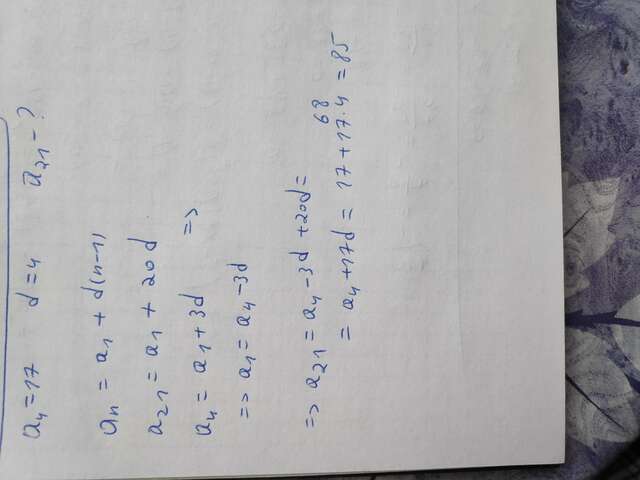 a₄=17 d=4 a₂₁-?
aₙ = a₁ + d(n-1)
a₂₁ = a₁ + 20d
a₄ = a₁ + 3d =>
=> a₁ = a₄ - 3d
=> a₂₁ = a₄ - 3d + 20d =
68
= a₄ + 17d = 17 + 17·4 = 85